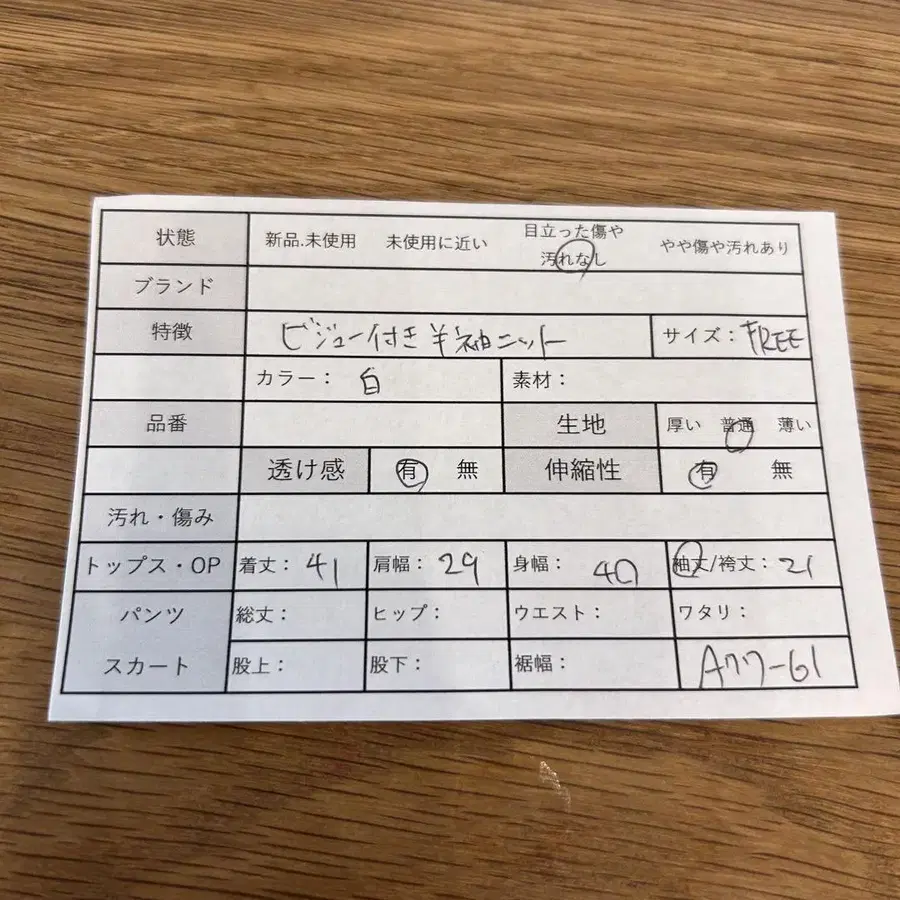 状態 新品.未使用 未使用に近い 目立った傷や汚れなし やや傷や汚れあり
ブランド
特徴 ビジュー付き半袖ニット サイズ：FREE
カラー：白 素材：
品番 生地 厚い 普通 薄い
透け感 有 無 伸縮性 有 無
汚れ・傷み
トップス・OP 着丈：41 肩幅：29 身幅：40 袖丈/裄丈：21
パンツ 総丈： ヒップ： ウエスト： ワタリ：
スカート 股上： 股下： 裾幅： A77-61